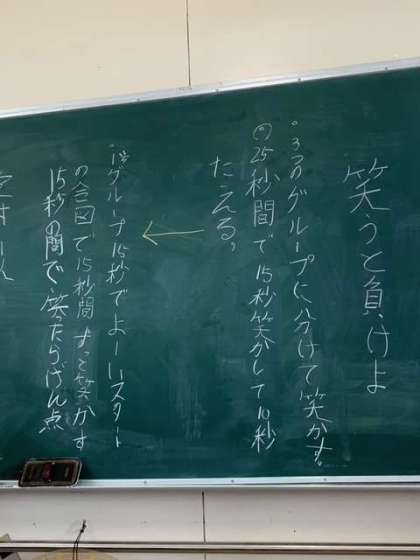 笑うと負けよ
・3つのグループに分けて笑かす。
・25秒間で15秒笑かして10秒
たえる。
←
・1グループ15秒でよーいスタート
の合図で15秒間ずっと笑かす
15秒の間で笑たらげん点